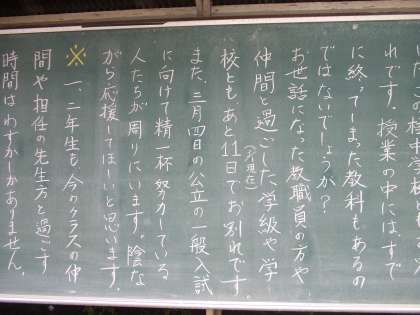 れです。授業の中には、すで
に終ってしまった教科もあるの
ではないでしょうか？
お世話になった教職員の方や
仲間と過ごした学級や学
校ともあと11日でお別れです。
また、三月四日の公立の一般入試
に向けて精一杯努力している
人たちが周りにいます。陰な
がら応援してほしいと思います。
※一、二年生も今のクラスの仲
間や担任の先生方と過ごす
時間はわずかしかありません。